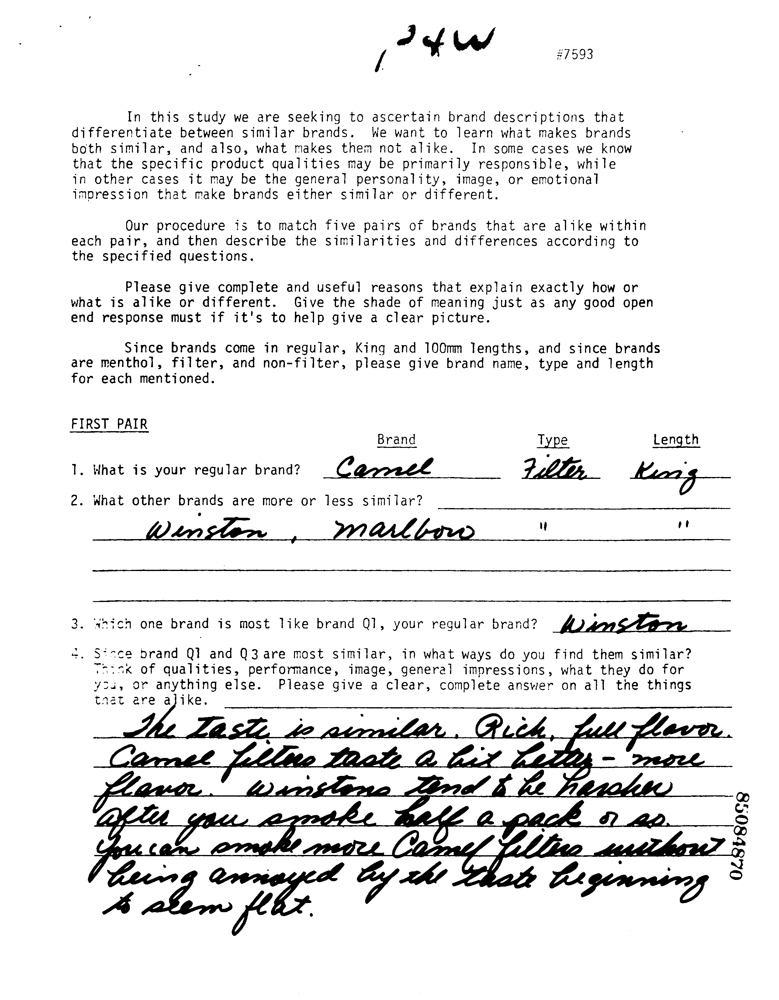 34W
#7593
In this study we are seeking to ascertain brand descriptions that
differentiate between similar brands. We want to learn what makes brands
both similar, and also, what makes them not alike. In some cases we know
that the specific product qualities may be primarily responsible, while
in other cases it may be the general personality, image, or emotional
impression that make brands either similar or different.
Our procedure is to match five pairs of brands that are alike within
each pair, and then describe the similarities and differences according to
the specified questions.
Please give complete and useful reasons that explain exactly how or
what is alike or different. Give the shade of meaning just as any good open
end response must if it's to help give a clear picture.
Since brands come in regular, King and 100mm lengths, and since brands
are menthol, filter, and non-filter, please give brand name, type and length
for each mentioned.
FIRST PAIR
Brand Type Length
1. What is your regular brand? Camel Filter King
2. What other brands are more or less similar?
Winston, Marlboro " "
3. Which one brand is most like brand Q1, your regular brand? Winston
4. Since brand Q1 and Q3 are most similar, in what ways do you find them similar?
Think of qualities, performance, image, general impressions, what they do for
you, or anything else. Please give a clear, complete answer on all the things
that are alike.
The taste is similar. Rich, full flavor.
Camel filters taste a bit better - more
flavor. Winstons tend to be harsher
after you smoke half a pack or so.
You can smoke more Camel filters without
being annoyed by the taste beginning
to seem flat.
85084870